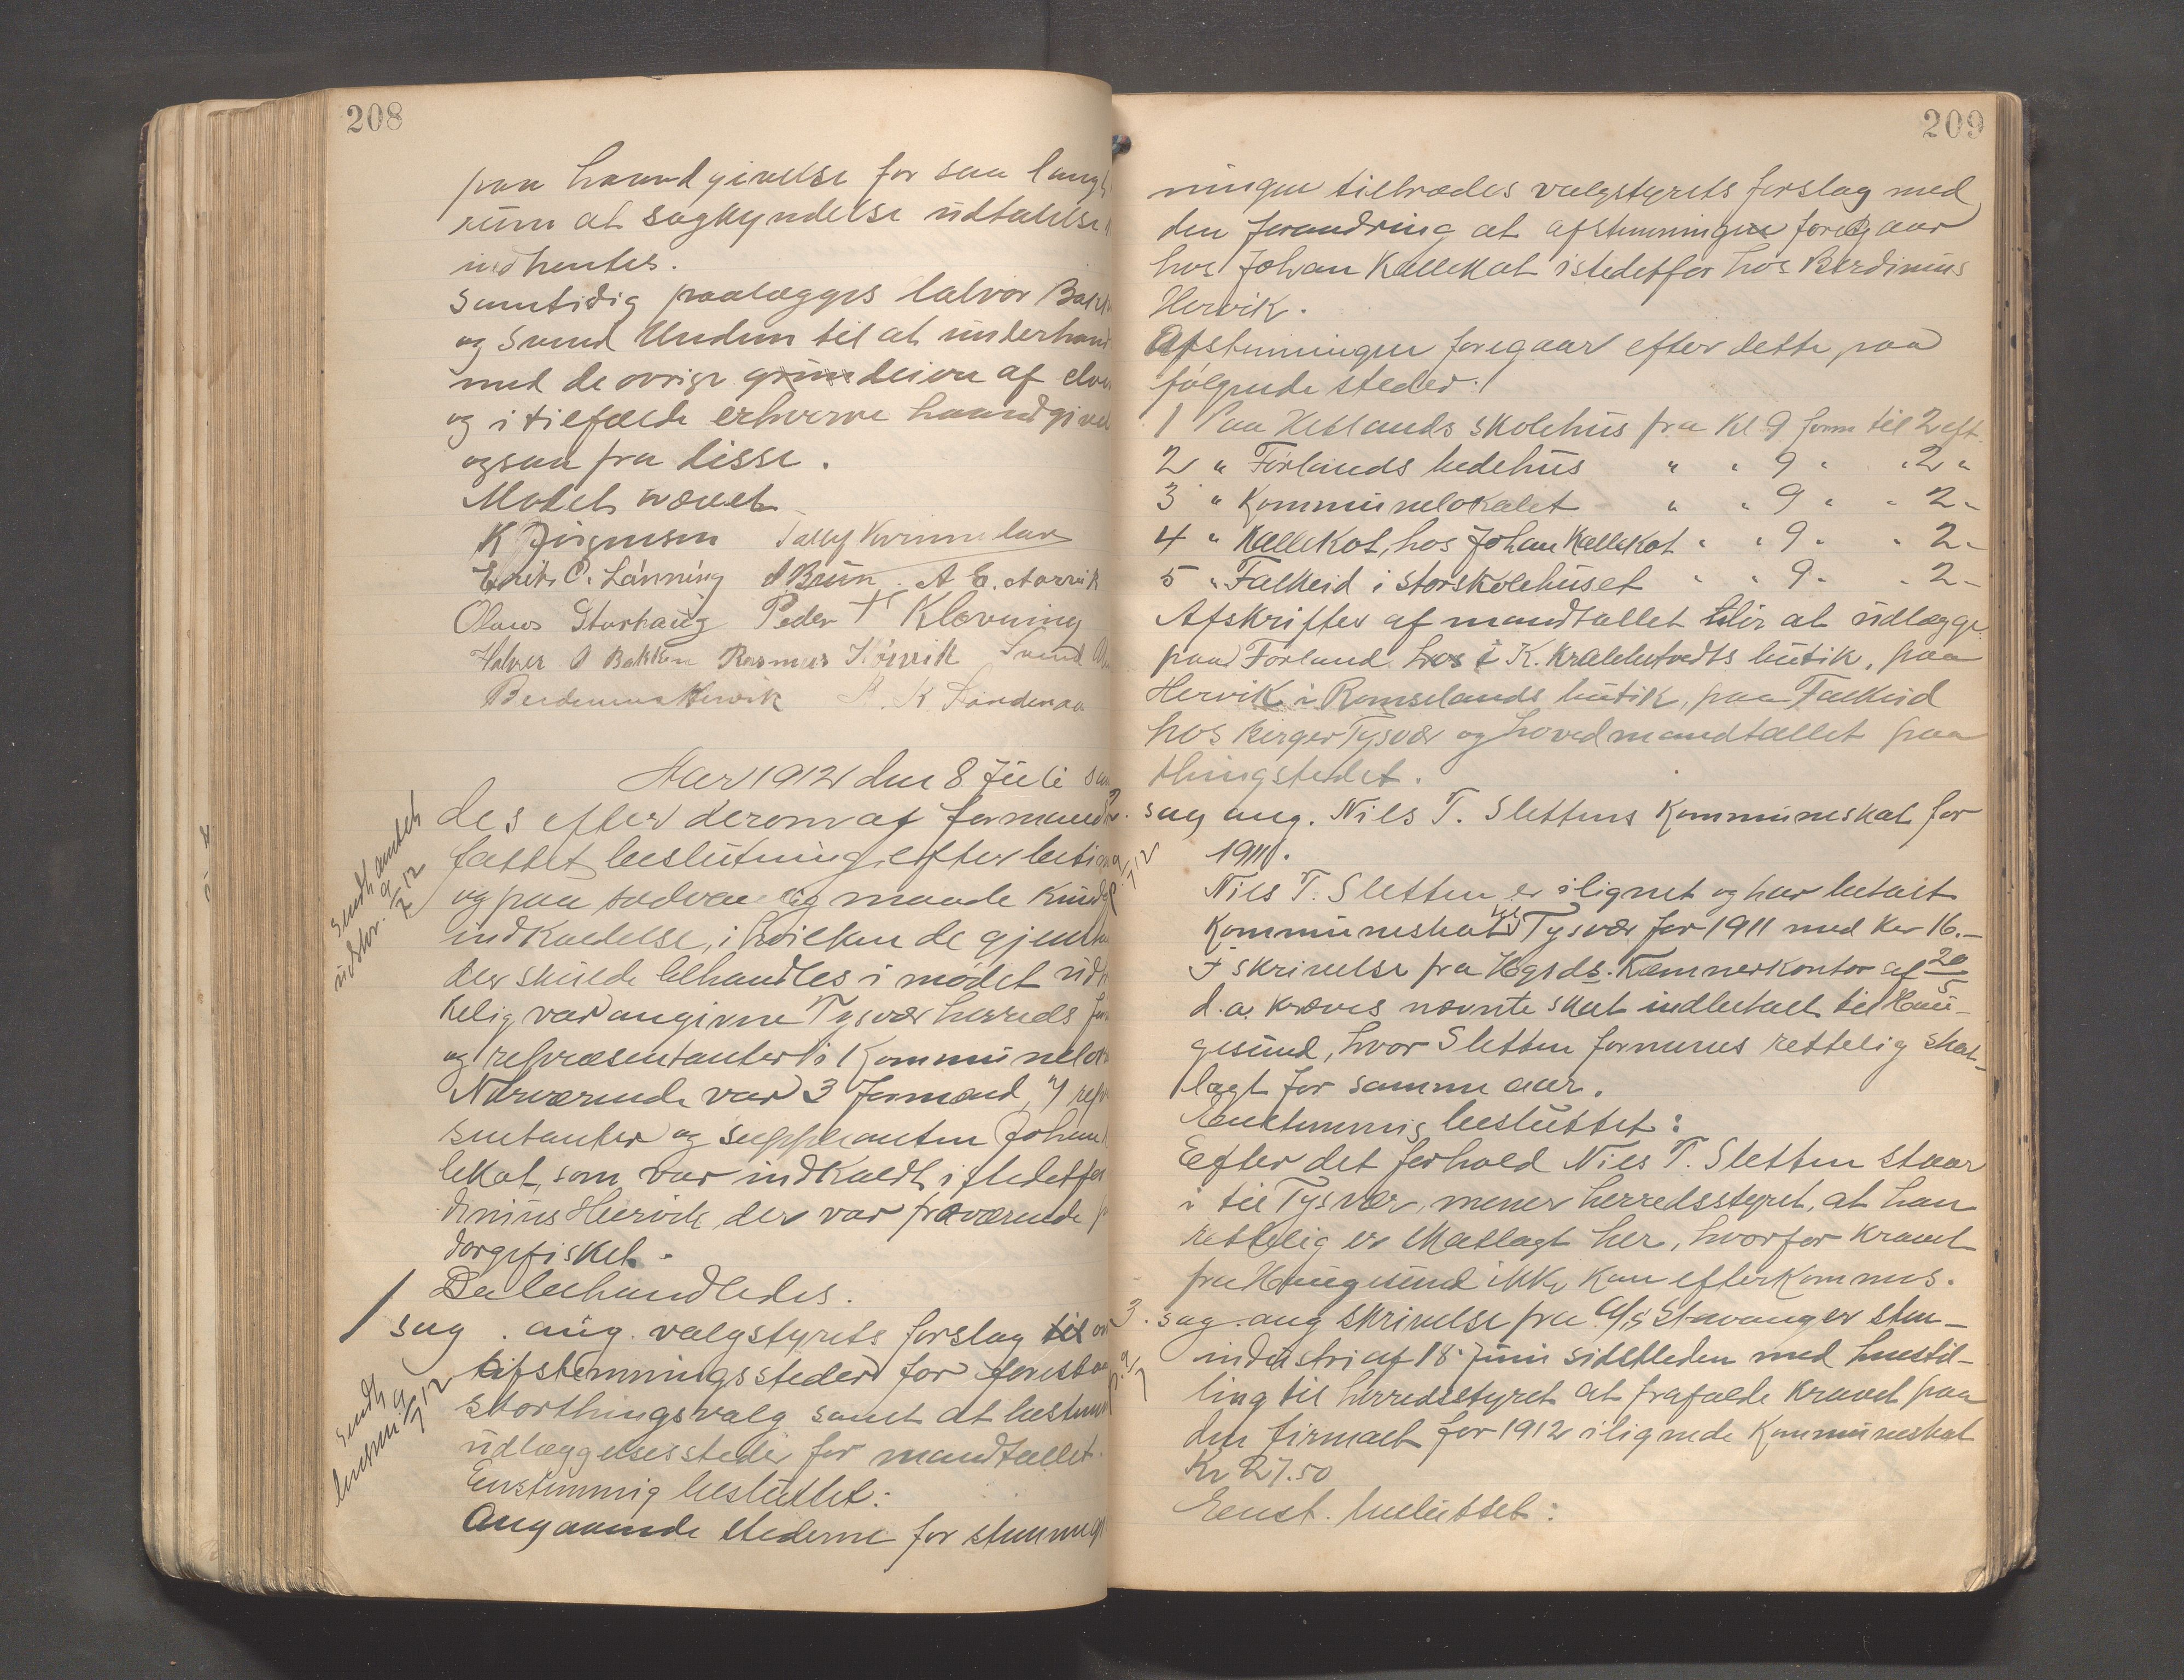 208
paa haandgivelse for saa langt
rum at sagkyndelse udtalelse
indhentes.
Samtidig paalægges Halvor Bakk
og Svend Undem til at underhand
med de øvrige grundeiere af elve
og i tilfælde erhverve haandgivel
ogsaa fra disse.
Mødet hævet
K Jørgensen
Endre C. Lønning S Brun. A E. Aarvik
Olaus Storhaug Peder T Kløvning
Halvor O Bakken Rasmus Hervik Svend
Berdinius Hervik K Sandenaa
Aar 1912 den 8 Juli sam
des efter derom af formand
fattet beslutning efter betim
og paa sedvanelig maade kundg
indkaldelse, i hvilken de gjenst
der skulde behandles i mødet udt
kelig var angivne Tysvær herreds for
og repræsentanter i Kommunelok
Nærværende var 3 formænd, 7 repr
sentanter og suppleanten Johan
lekot, som var indkaldt istedetfor
dinius Hervik, der var fraværende p
dorgefisket.
Sendt amtet
udskr. 9/7 12
Da behandledes.
1 sag. ang. valgstyrets forslag til om
afstemningssteder for forestaa
storthingsvalg samt at bestemm
udlæggelsessteder for mandtallet.
Enstemmig besluttet:
Angaaende stederne for stemmegi
Sendt
lensm. 9/7 12
209
ningen tiltrædes valgstyrets forslag med
den forandring at afstemningen foregaar
hos Johan Kallekot istedetfor hos Berdinius
Hervik.
Afstemningen foregaar efter dette paa
følgende steder:
1 Paa Hetlands skolehus fra Kl 9 form til 2 eft.
2 " Førlands bedehus " " 9 " " 2 "
3 " Kommunelokalet " " 9 " " 2 "
4 " Kallekot, hos Johan Kallekot " " 9 " " 2 "
5 " Falkeid i storskolehuset " " 9 " " 2 "
Afskrifter af mandtallet blir at udlægge
paa Førland hos i K. Krakketvedts butik, paa
Hervik i Romselands butik, paa Falkeid
hos Birger Tysvær og hovedmandtallet paa
thingstedet.
2. sag ang. Nils T. Slettens Kommuneskat for
1911.
9/7 12
Nils T. Sletten er ilignet og har betalt
Kommuneskat til Tysvær for 1911 med kr 16.–
I skrivelse fra Hgsds. Kæmnerkontor af 20/5
d.a. kræves nævnte skat indbetalt til Hau-
gesund, hvor Sletten formenes rettelig skat-
lagt for samme aar.
Enstemmig besluttet:
Efter det forhold Nils T. Sletten staar
i til Tysvær, mener herredsstyret, at han
rettelig er skatlagt her, hvorfor kravet
fra Haugesund ikke kan efterkommes.
3. sag. ang skrivelse fra A/s Stavanger sten-
industri af 18. Juni sidstleden med henstil-
9/7
ling til herredsstyret at frafalde kravet paa
den firmaet for 1912 ilignede Kommuneskat
Kr 27.50
Enst. besluttet: